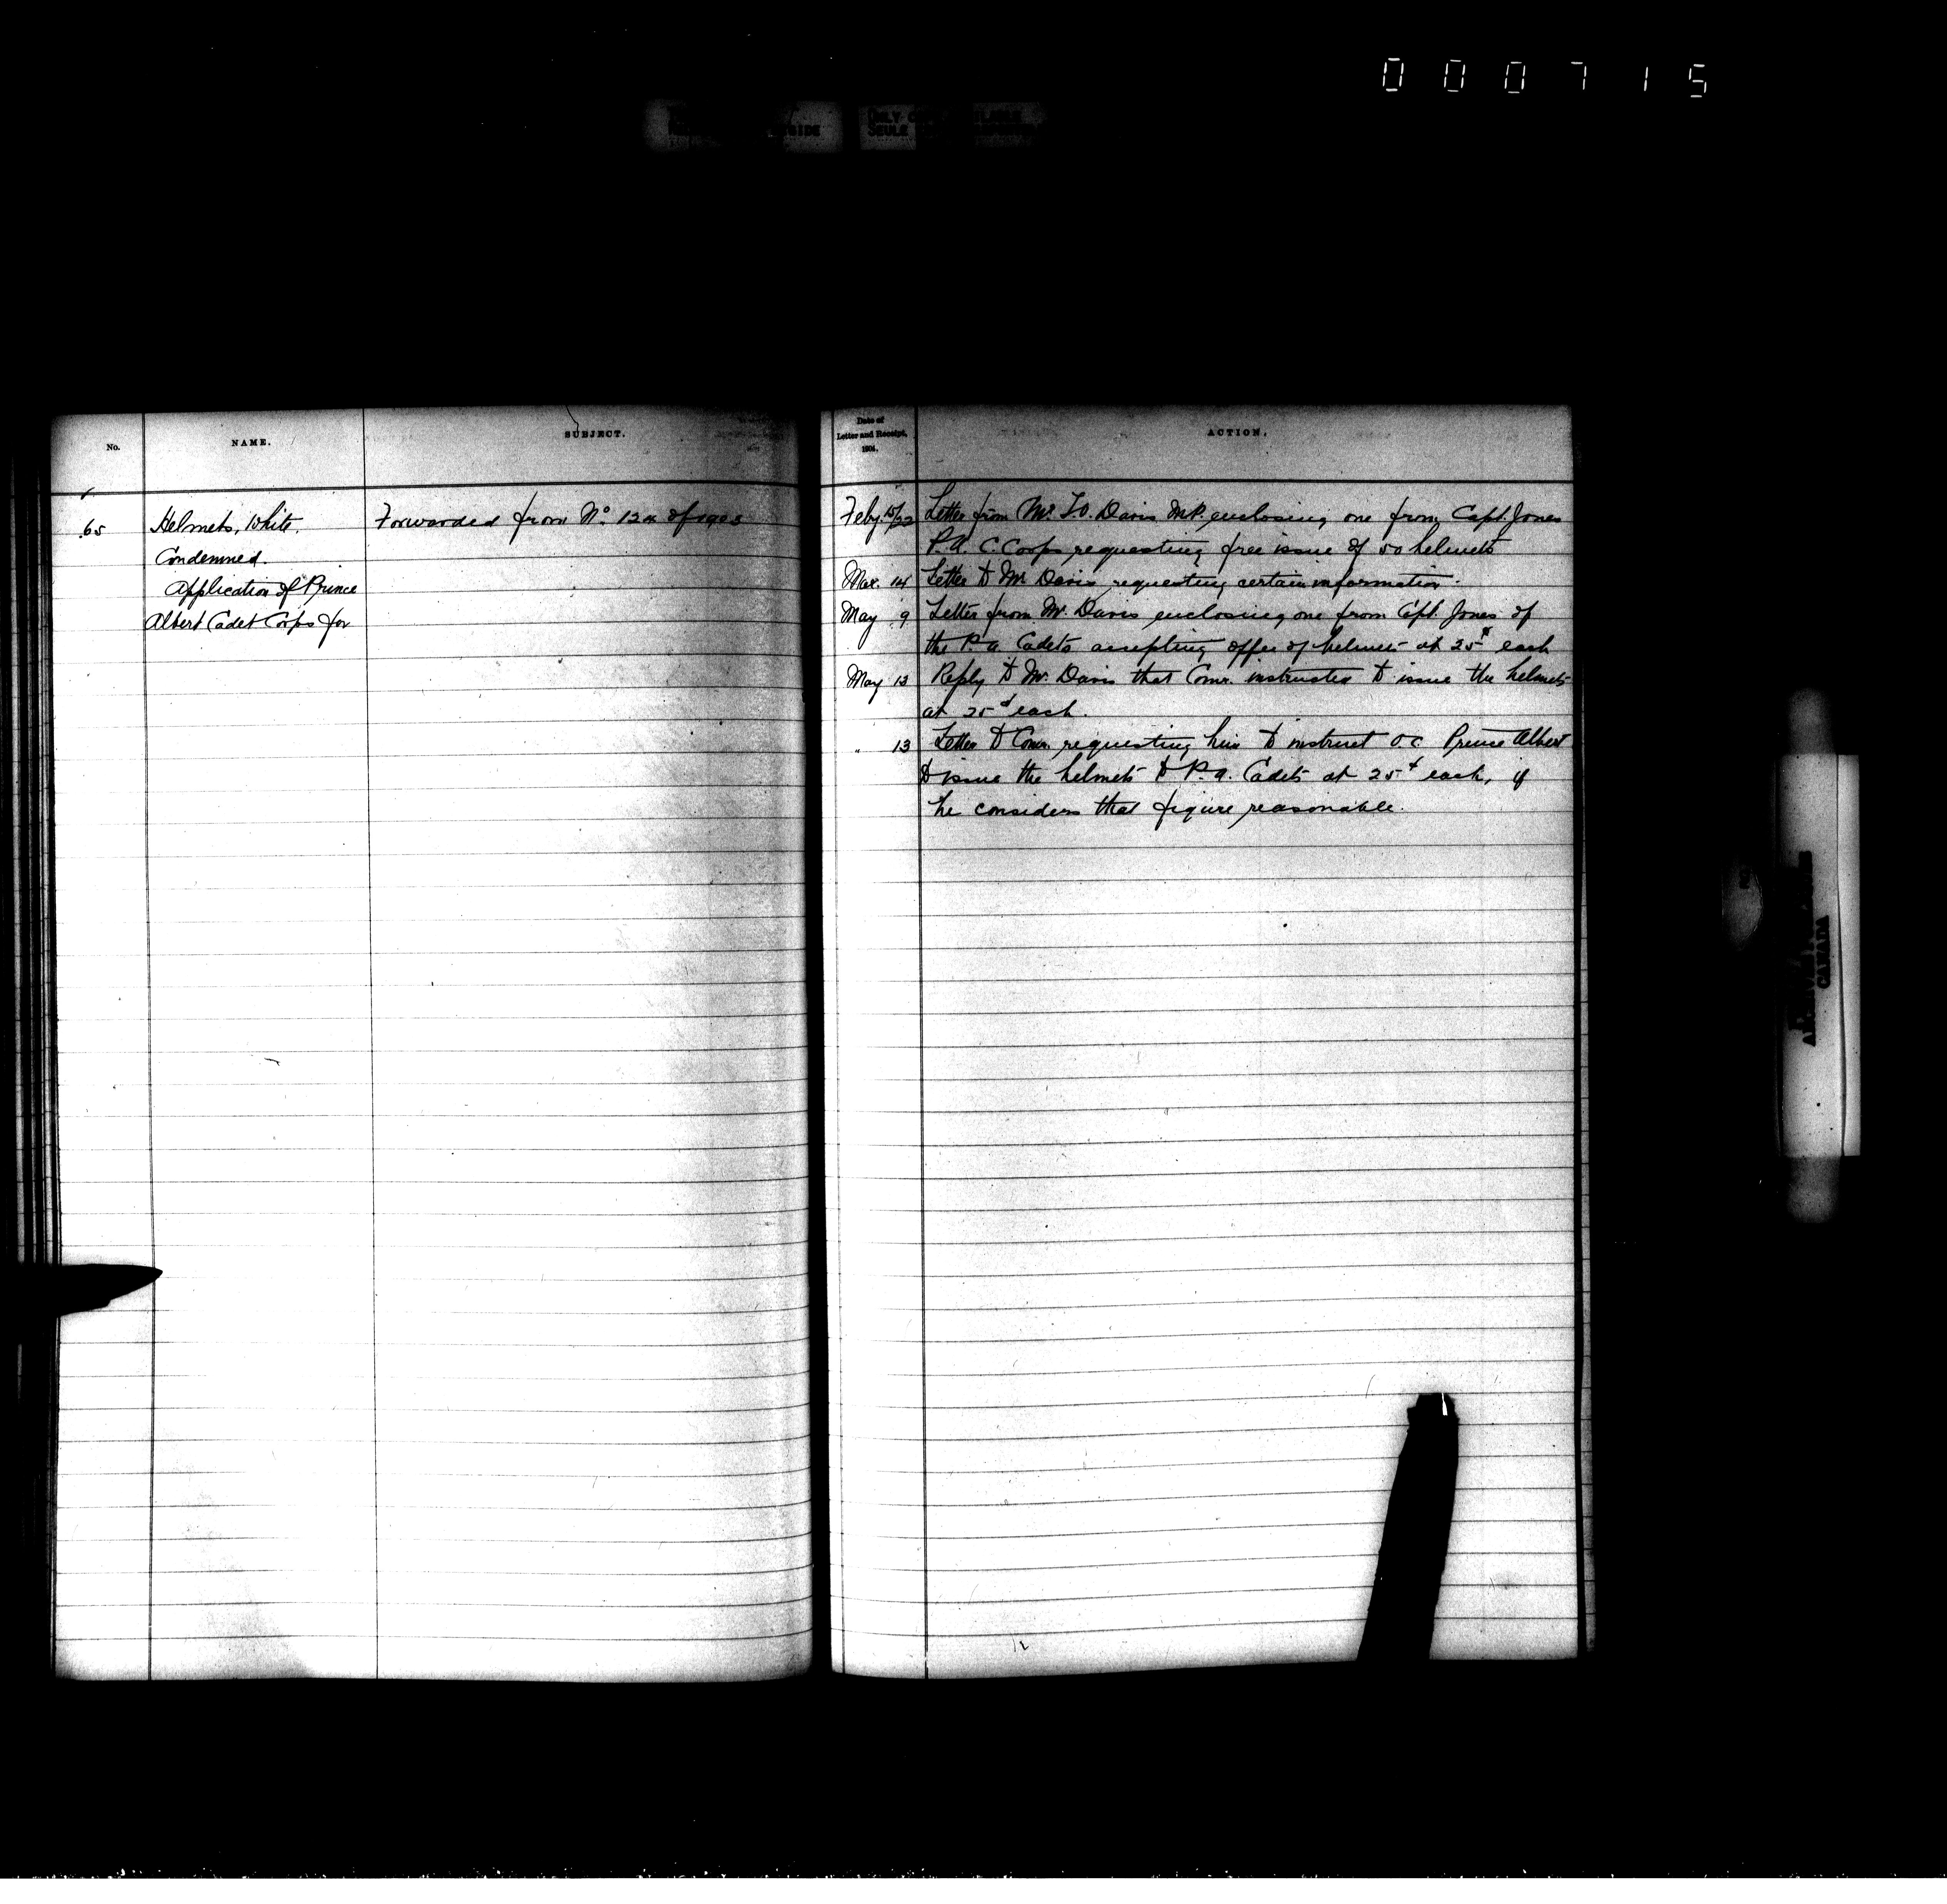 000715
No.
NAME.
SUBJECT.
65
Helmets, White,
Condemned.
Application of Prince
Albert Cadet Corps for
Forwarded from No. 124 of 1903
Date of
Letter and Receipt,
1904.
ACTION.
Feby. 15/22 Letter from Mr. T.O. Davis M.P. enclosing one from Capt. Jones
P.A. C. Corps requesting free issue of 50 helmets
Mar. 14 Letter to Mr Davis requesting certain information.
May 9 Letter from Mr. Davis enclosing one from Capt. Jones of
the P.A. Cadets accepting offer of helmets at 25¢ each
May 13 Reply to Mr. Davis that Comr. instructed to issue the helmets
at 25¢ each.
" 13 Letter to Comr. requesting him to instruct O.C. Prince Albert
to issue the helmets to P.A. Cadets at 25¢ each, if
he considers that figure reasonable.
CANADA